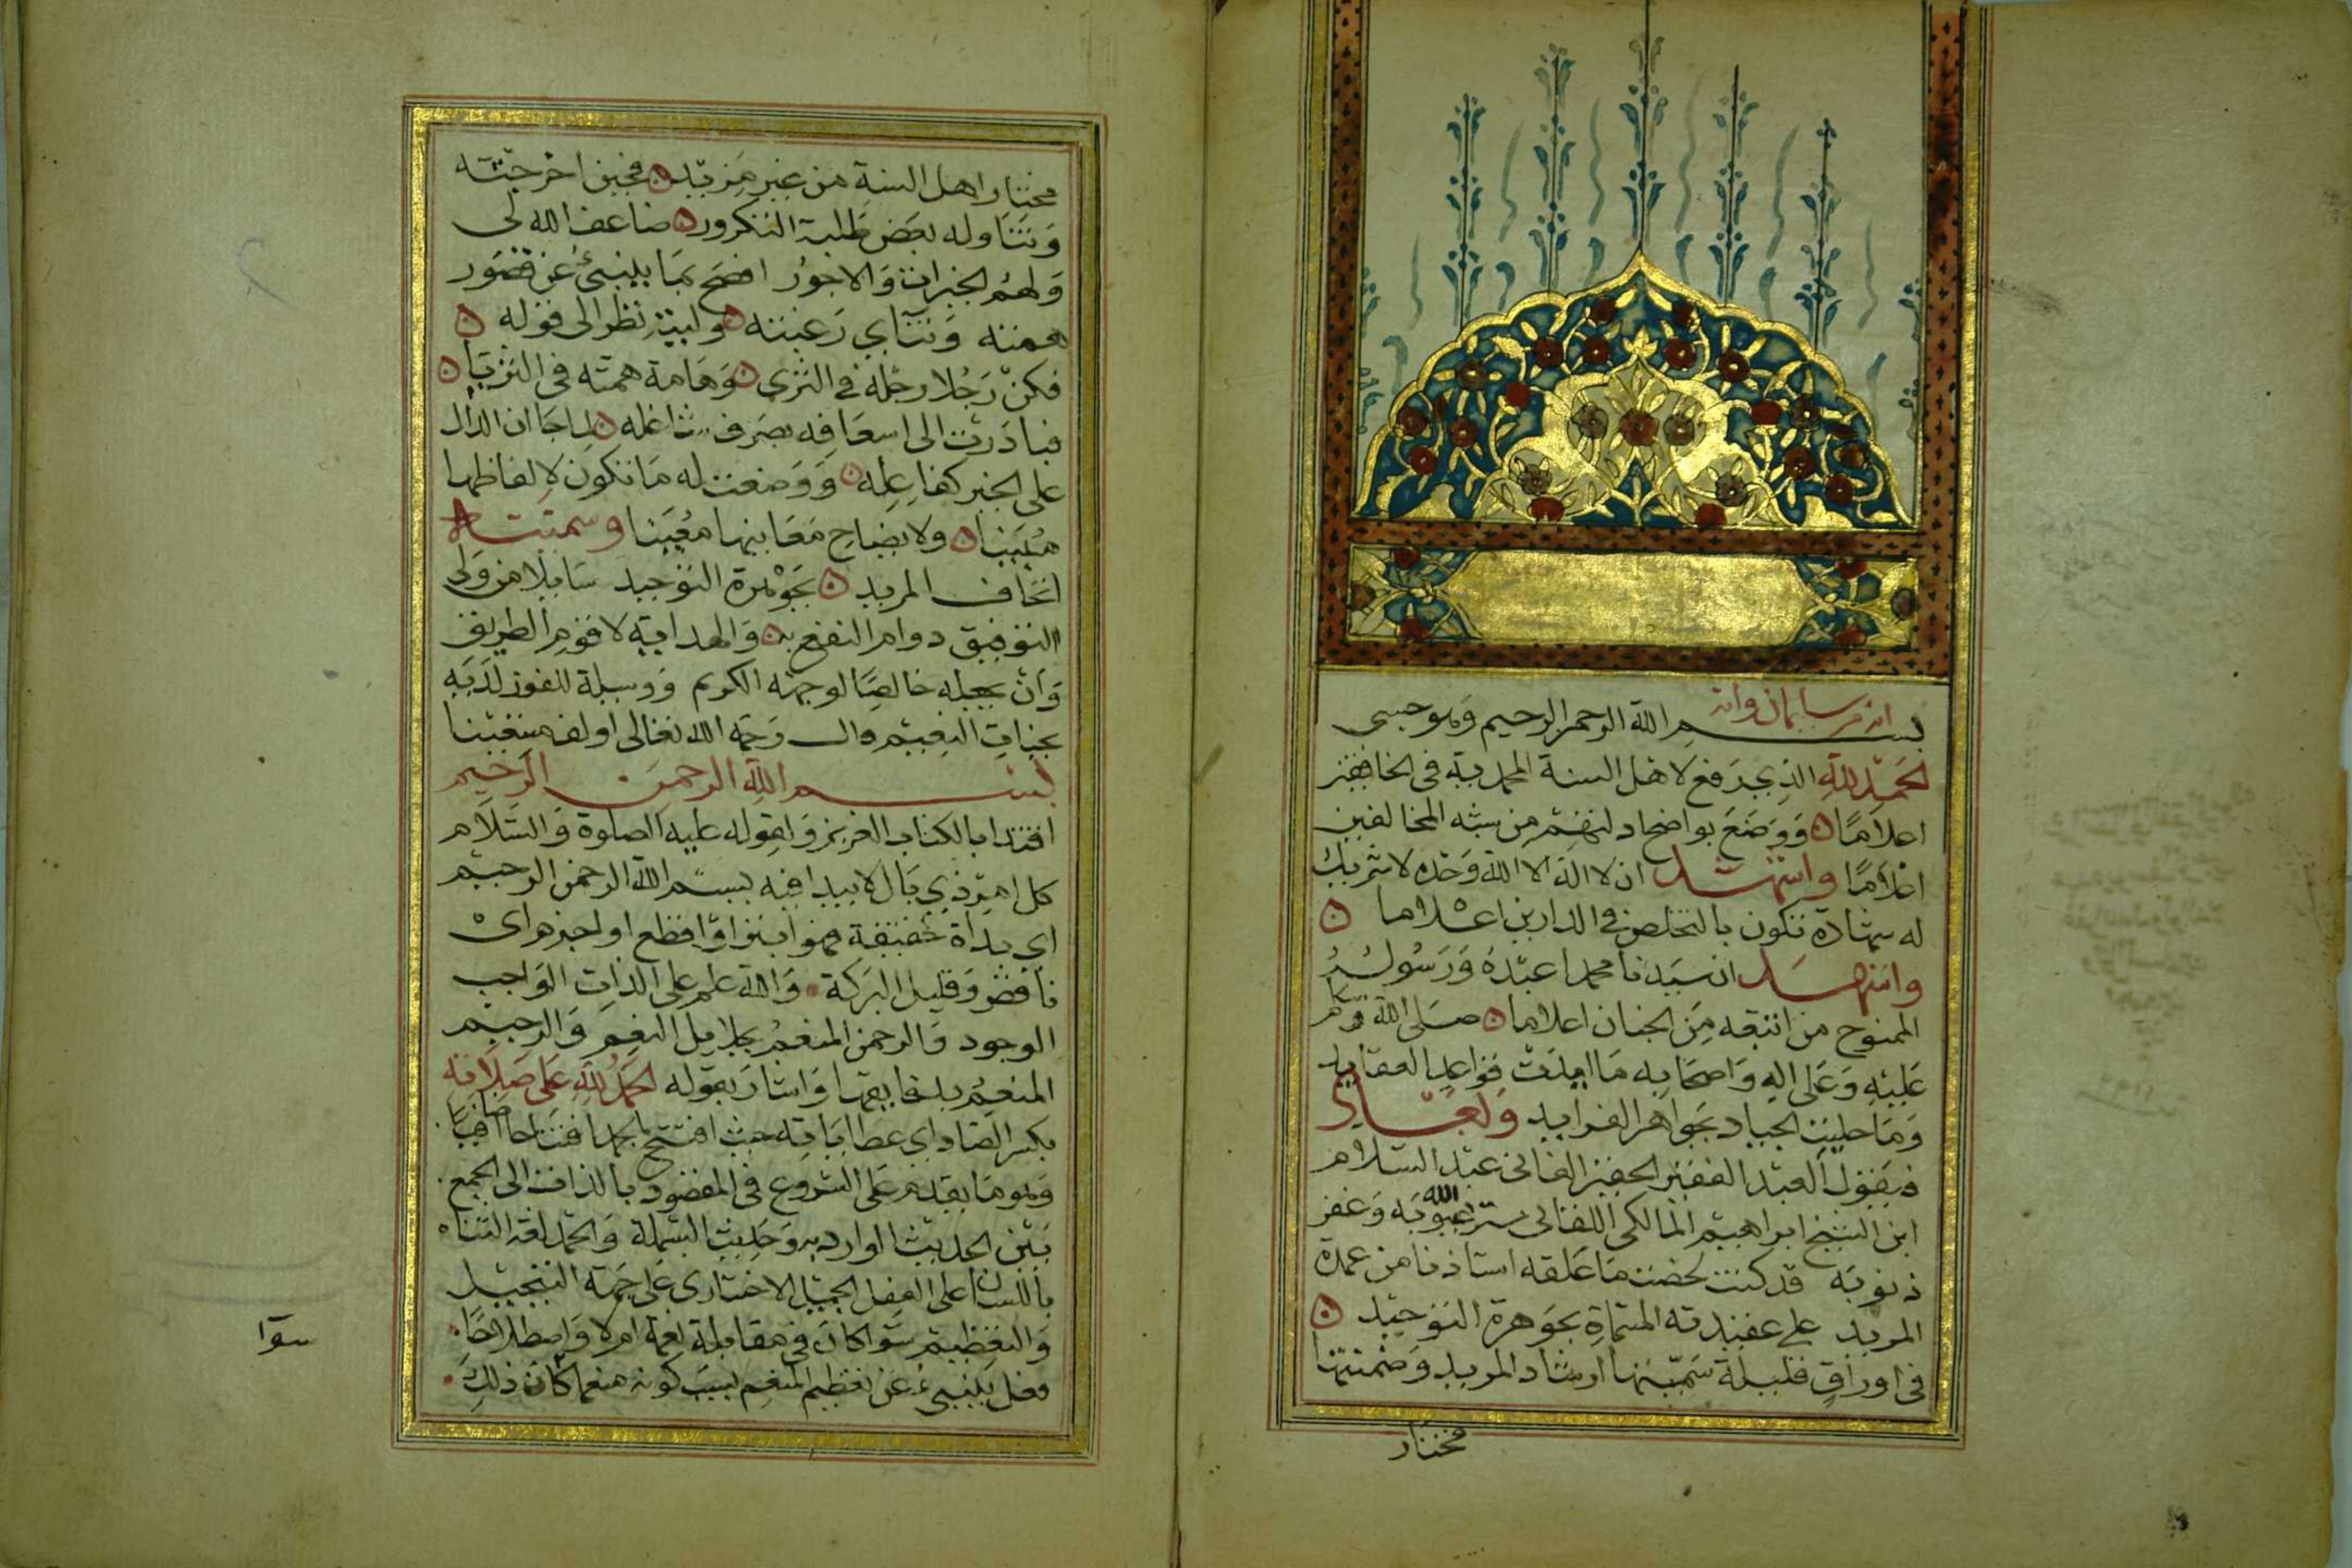 انه من سليمان وانه
بسم الله الرحمن الرحيم وهو حسبى
الحمد لله الذي رفع لاهل السنة المحمدية فى الخافقين
اعلاما ووضع بواضح ادلتهم من شبه المخالفين
اعلاما واشهد ان لا اله الا الله وحده لا شريك
له شهادة تكون بالتخلص فى الدارين اعلاما
واشهد ان سيدنا محمدا عبده ورسوله
الممنوح من اتبعه من الجنان اعلاما صلى الله وسلم
عليه وعلى اله واصحابه ما ايدت قواعد العقايد
وما حليت الجياد بجواهر الفرايد وبعد
فيقول العبد الفقير الحقير الفانى عبد السلام
ابن الشيخ ابراهيم المالكى اللقانى ستر الله عيوبه وغفر
ذنوبه قد كنت لخصت ما علقه استاذنا من عمدة
المريد على عقيدته المسماة بجوهرة التوحيد
فى اوراق قليلة سميتها ارشاد المريد وضمنتها
مختار
مختار اهل السنة من غير مزيد فحين اخرجته
وتناوله بعض طلبة التكرور ضاعف الله لى
ولهم الخيرات والاجور افصح بما ينبئ عن قصور
همته وتناي رغبته وليته نظر الى قوله
فكن رجلا رجله في الثرى وهامة همته فى الثريا
فبادرت الى اسعافه بصرف شاغله لما جا ان الدال
على الخير كفاعله ووضعت له ما تكون لالفاظها
مبينا ولايضاح معانيها معينا وسميته
اتحاف المريد بجوهرة التوحيد سايلا من ولى
التوفيق دوام النفع به والهداية لاقوم الطريق
وان يجعله خالصا لوجهه الكريم ووسيلة للفوز لديه
بجنات النعيم قال رحمه الله تعالى اولف مستعينا
بسم الله الرحمن الرحيم
اقتدا بالكتاب العزيز ولقوله عليه الصلوة والسلام
كل امر ذي بال لا يبدا فيه ببسم الله الرحمن الرحيم
اى بداة حقيقية فهو ابتر او اقطع او اجذم اى
ناقص وقليل البركة والله علم على الذات الواجب
الوجود والرحمن المنعم بجلايل النعم والرحيم
المنعم بدقايقها واشار بقوله الحمد لله على صلاته
بكسر الصاد اي عطاياته حيث افتتح بالحمد افتتاحا اضافيا
وهو ما يقدم على الشروع فى المقصود بالذات الى الجمع
بين الحديث الوارد به وحديث البسملة والحمد لغة الثناء
باللسان على الفعل الجميل الاختيارى على جهة التبجيل
والتعظيم سوا كان فى مقابلة نعمة ام لا واصطلاحا
فعل ينبئ عن تعظيم المنعم بسبب كونه منعما كان ذلك
سوا